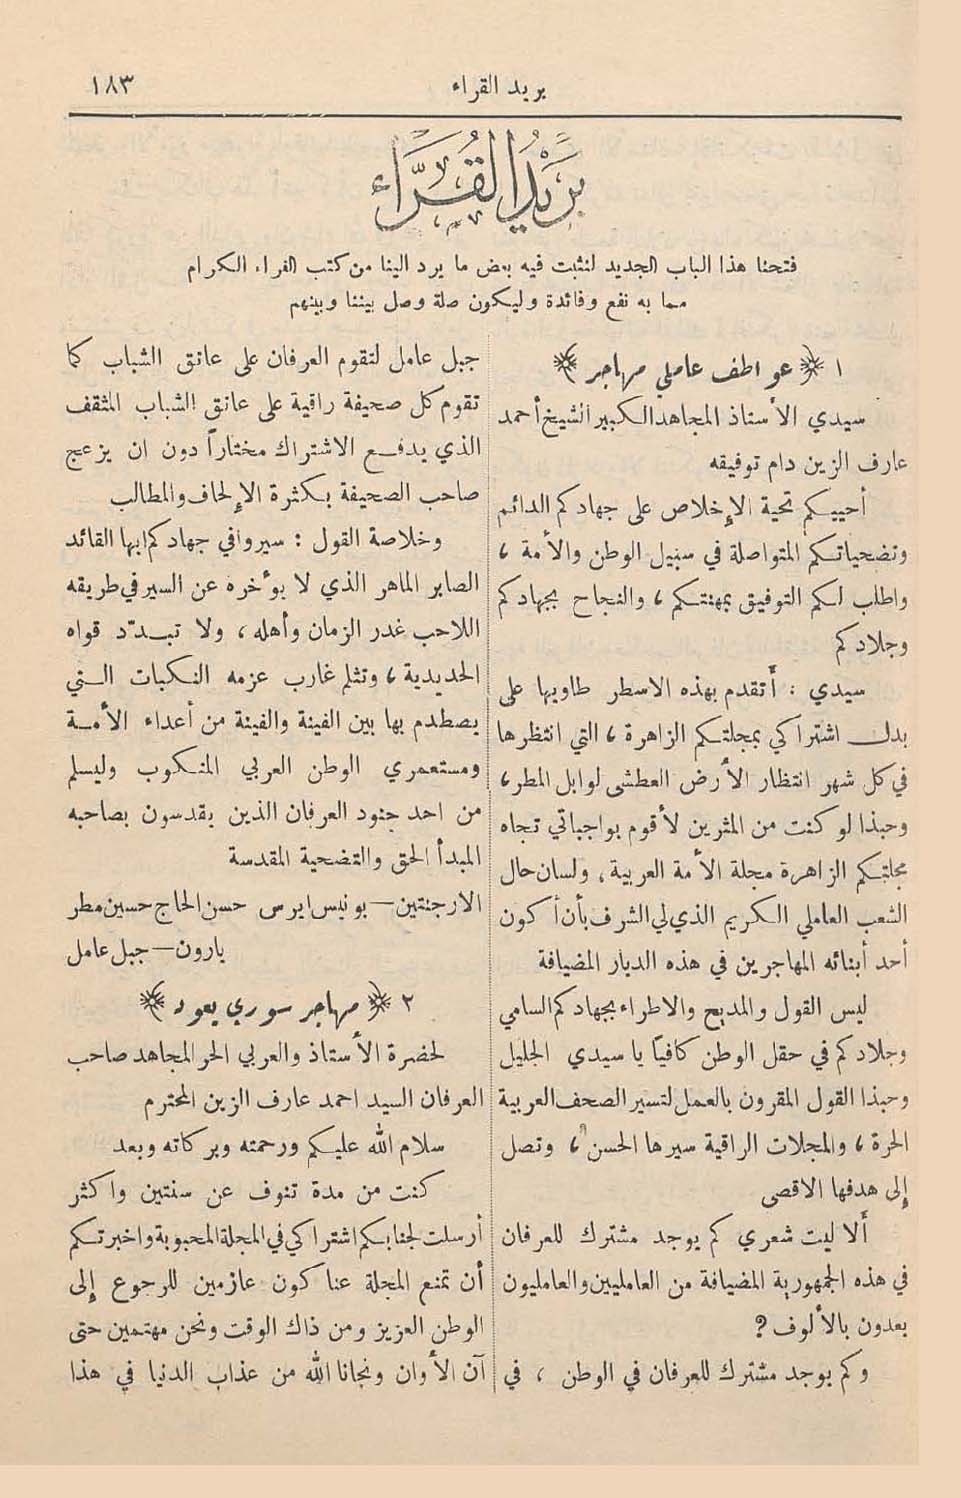 بريد القراء ١٨٣
بَريْدُ القُرَّاء
فتحنا هذا الباب الجديد لنثبت فيه بعض ما يرد الينا من كتب القراء الكرام
مما به نفع وفائدة وليكون صلة وصل بيننا وبينهم
١ ﴿ عواطف عاملي مهاجر ﴾
سيدي الأستاذ المجاهد الكبير الشيخ أحمد
عارف الزين دام توفيقه
أحييكم تحية الإخلاص على جهادكم الدائم
وتضحياتكم المتواصلة في سبيل الوطن والأمة ،
واطلب لكم التوفيق بمهنتكم ، والنجاح بجهادكم
وجلادكم
سيدي : أتقدم بهذه الاسطر طاويها على
بدل اشتراكي بمجلتكم الزاهرة ، التي انتظرها
في كل شهر انتظار الأرض العطشى لوابل المطر ،
وحبذا لو كنت من المثرين لأقوم بواجباتي تجاه
مجلتكم الزاهرة مجلة الأمة العربية ، ولسان حال
الشعب العاملي الكريم الذي لي الشرف بأن أكون
أحد أبنائه المهاجرين في هذه الديار المضيافة
ليس القول والمديح والاطراء بجهادكم السامي
وجلادكم في حقل الوطن كافياً يا سيدي الجليل
وحبذا القول المقرون بالعمل لتسير الصحف العربية
الحرة ، والمجلات الراقية سيرها الحسن ، وتصل
إلى هدفها الاقصى
ألا ليت شعري كم يوجد مشترك للعرفان
في هذه الجمهورية المضيافة من العامليين والعامليون
يعدون بالألوف ?
وكم يوجد مشترك للعرفان في الوطن ، في
جبل عامل لتقوم العرفان على عاتق الشباب كما
تقوم كل صحيفة راقية على عاتق الشباب المثقف
الذي يدفع الاشتراك مختاراً دون ان يزعج
صاحب الصحيفة بكثرة الإلحاف والمطالب
وخلاصة القول : سيروا في جهادكم ايها القائد
الصابر الماهر الذي لا يؤخره عن السير في طريقه
اللاحب غدر الزمان وأهله ، ولا تبدّد قواه
الحديدية ، وتثلم غارب عزمه النكبات التي
يصطدم بها بين الفينة والفينة من أعداء الأمة
ومستعمري الوطن العربي المنكوب وليسلم
من احد جنود العرفان الذين يقدسون بصاحبه
المبدأ الحق والتضحية المقدسة
الارجنتين — بونيس ايرس حسن الحاج حسين مطر
يارون — جبل عامل
٢ ﴿ مهاجر سوري يعود ﴾
لحضرة الأستاذ والعربي الحر المجاهد صاحب
العرفان السيد احمد عارف الزين المحترم
سلام الله عليكم ورحمته وبركاته وبعد
كنت من مدة تنوف عن سنتين واكثر
أرسلت لجنابكم اشتراكي في المجلة المحبوبة واخبرتكم
أن تمنع المجلة عنا كون عازمين للرجوع إلى
الوطن العزيز ومن ذاك الوقت ونحن مهتمين حتى
آن الأوان ونجانا الله من عذاب الدنيا في هذا